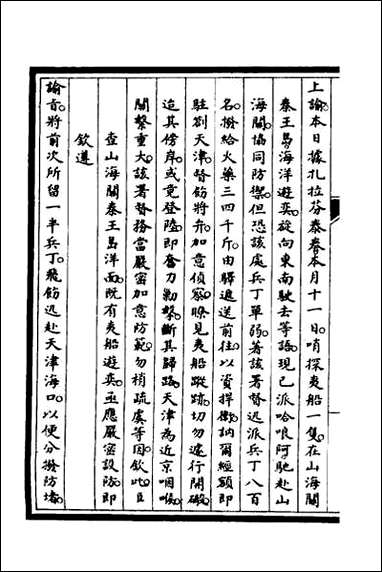 上諭本日據扎拉芬泰奏本月十一日哨探夷船一隻在山海關
秦王島海洋遊奕旋向東南駛去等語現已派哈哴阿馳赴山
海關協同防禦但恐該處兵丁單弱著該署督迅派兵丁八百
名撥給火藥三四千斤由驛遞送前往以資捍衛訥爾經額即
駐劄天津督飭將弁加意偵察瞭見夷船蹤跡切勿遽行開礟
迨其傍岸或竟登陸即奮刀勦擊斷其歸路天津為近京咽喉
關繫重大該署督務當嚴密加意防範勿稍疏虞等因欽此且
查山海關秦王島洋面既有夷船遊奕亟應嚴密設防即
欽遵
諭旨將前次所留一半兵丁飛飭迅赴天津海口以便分撥防堵